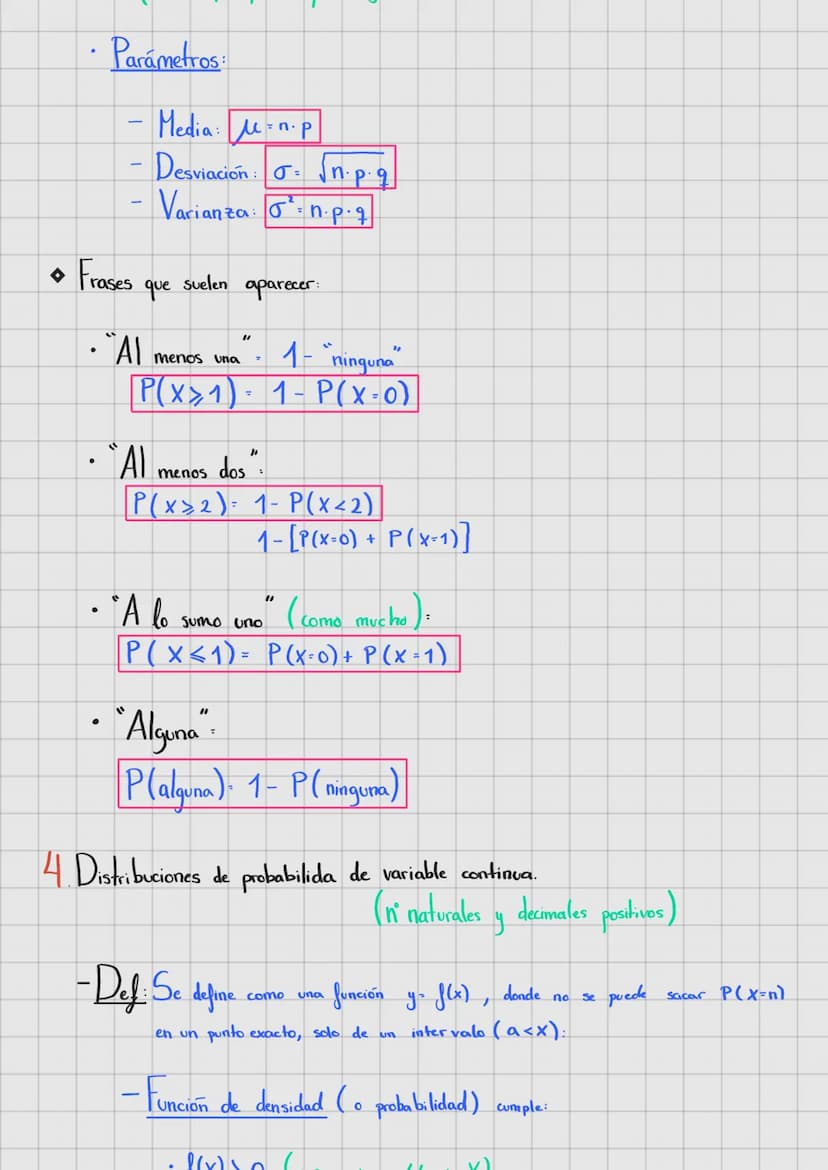 · Parámetros:
- Media: μ = n·p
- Desviación: σ = √n·p·q
- Varianza: σ² = n·p·q
❖ Frases que suelen aparecer:
· "Al menos una" = 1 - "ninguna"
P(X⩾1) = 1 - P(X=0)
· "Al menos dos":
P(X⩾2) = 1 - P(X<2)
1 - [P(X=0) + P(X=1)]
· "A lo sumo uno" (como mucho):
P(X⩽1) = P(X=0) + P(X=1)
· "Alguna":
P(alguna) = 1 - P(ninguna)
4. Distribuciones de probabilida de variable continua.
(nº naturales y decimales positivos)
- Def: Se define como una función y = f(x), donde no se puede sacar P(X=n)
en un punto exacto, solo de un intervalo (a<x):
- Función de densidad (o probabilidad) cumple: